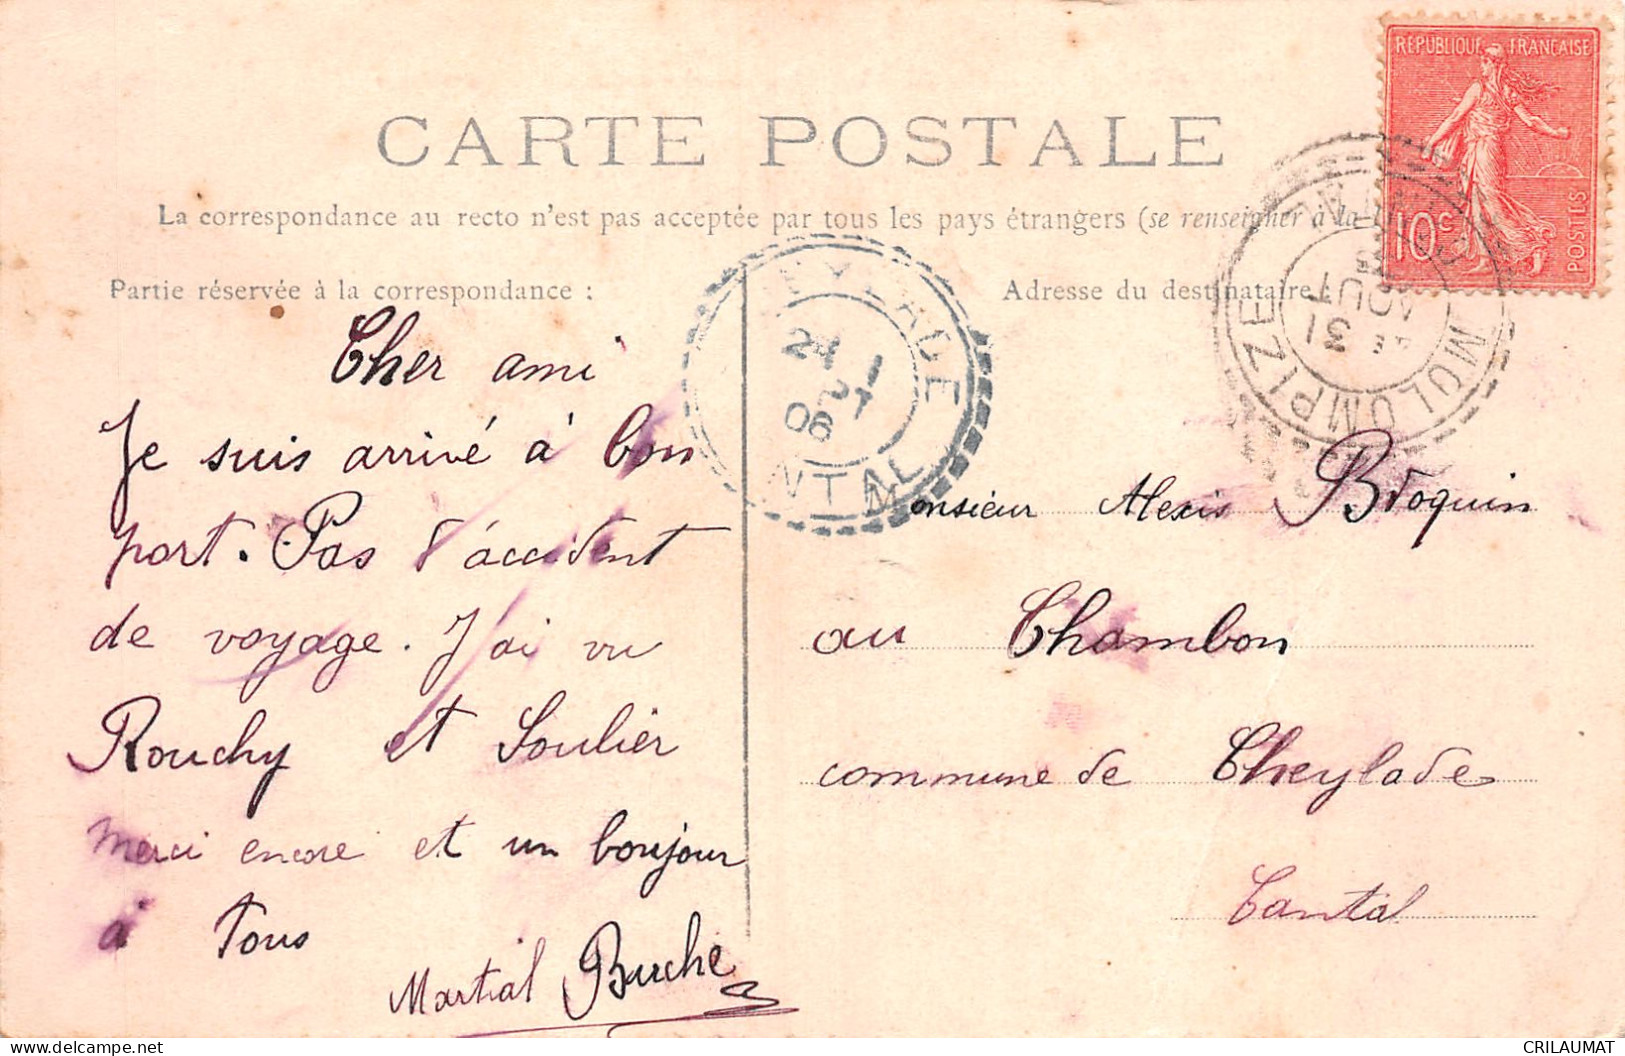 RÉPUBLIQUE FRANÇAISE
10c
POSTES
CARTE POSTALE
La correspondance au recto n'est pas acceptée par tous les pays étrangers (se renseigner à la
Partie réservée à la correspondance :
Adresse du destinataire
MOLOMPIZE
31
AOUT
EYLADE
24
06
NTAL
Cher ami
Je suis arrivé à bon
port. Pas d'accident
de voyage. J'ai vu
Rouchy et Soulier
Merci encore et un bonjour
à Tous
Martial Buche
Monsieur Alexis Broquin
au Chambon
commune de Cheylade
Cantal
CRILAUMAT